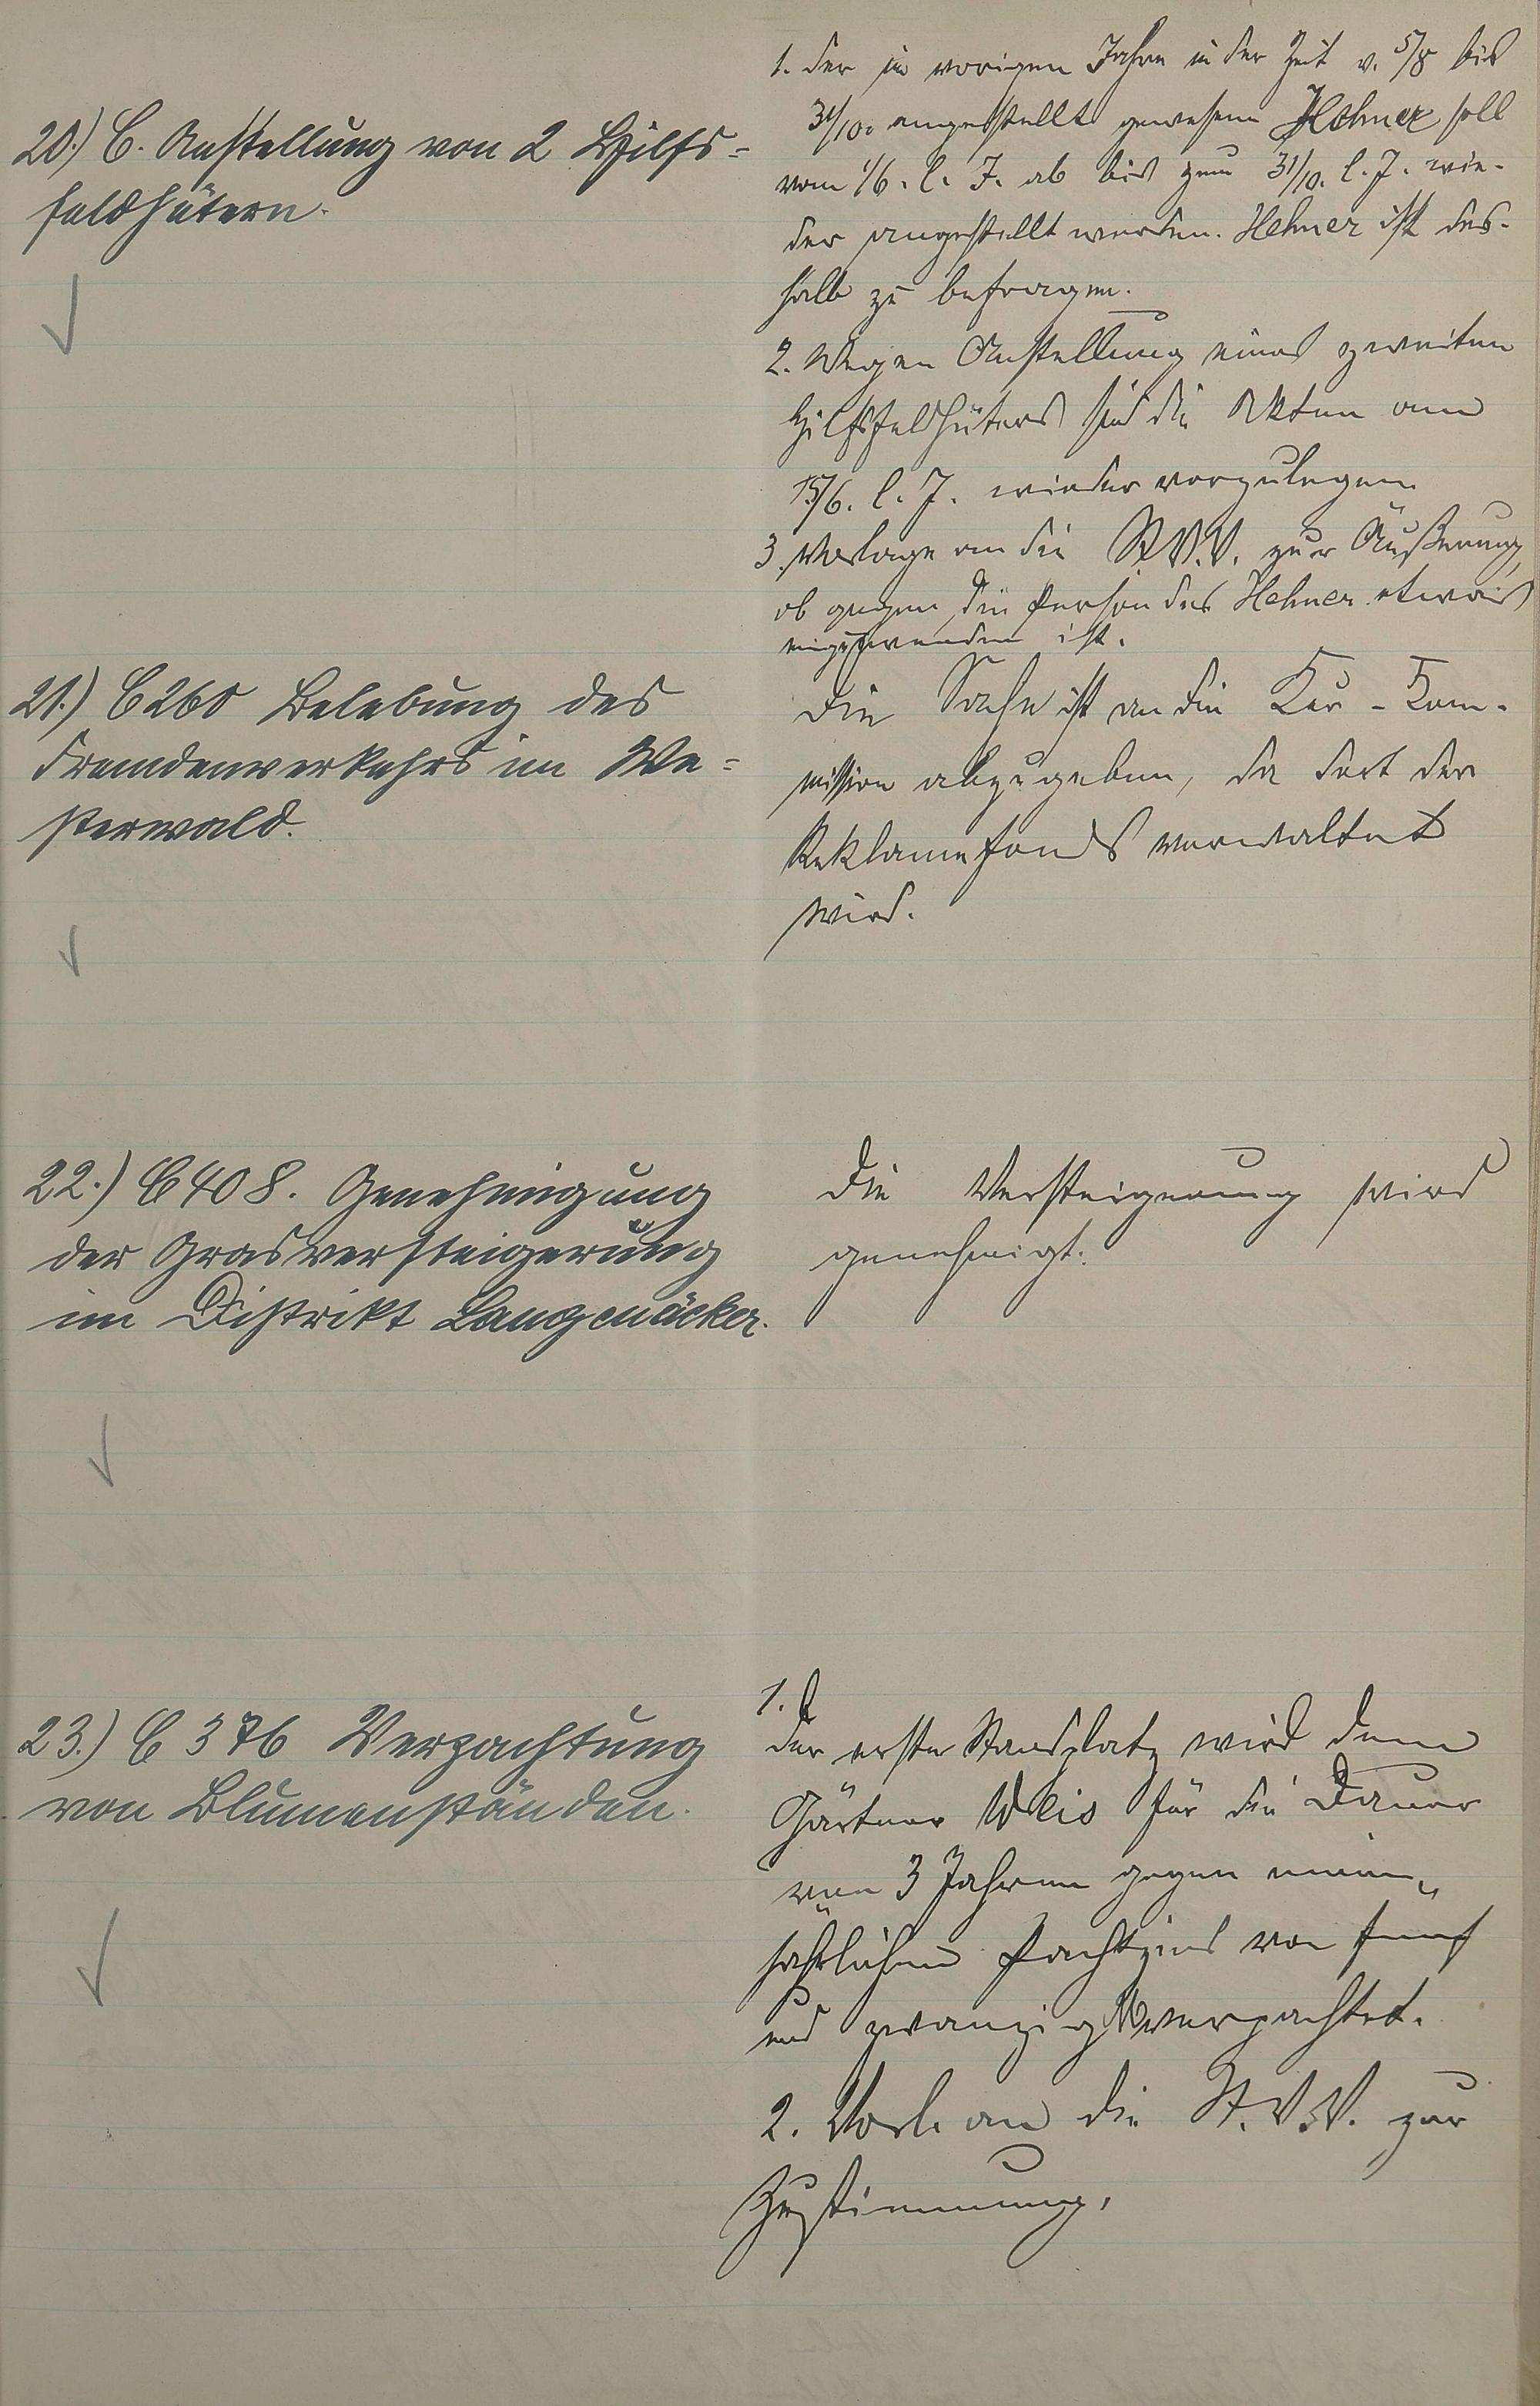 20.) C. Anstellung von 2 Hilfs=
feldhütern.
1. Der im vorigen Jahre in der Zeit v. 5/8 bis
31/10. angestellt gewesene Hehner soll
vom 1/6. l. J. ab bis zum 31/10. l. J. wie-
der angestellt werden. Hehner ist des-
halb zu befragen.
2. Wegen Anstellung eines zweiten
Hilfsfeldhüters sind die Akten am
15/6. l. J. wieder vorzulegen
3. Vorlage an die St.V.V. zur Äußerung,
ob gegen die Person des Hehner etwas
einzuwenden ist.
21.) C 260 Belebung des
Fremdenverkehrs im We=
sterwald.
Die Sache ist an die Kur-Kom-
mission abzugeben, da dort der
Reklamefonds verwaltet
wird.
22.) C 408. Genehmigung
der Grasversteigerung
im Distrikt Langenäcker.
Die Versteigerung wird
genehmigt.
23.) C 376 Verpachtung
von Blumenständen.
1.
Der erste Standplatz wird dem
Gärtner Weis für die Dauer
von 3 Jahren gegen einen
jährlichen Pachtzins von fünf
und zwanzig M verpachtet.
2. Vorl. an die St.V.V. zur
Zustimmung.